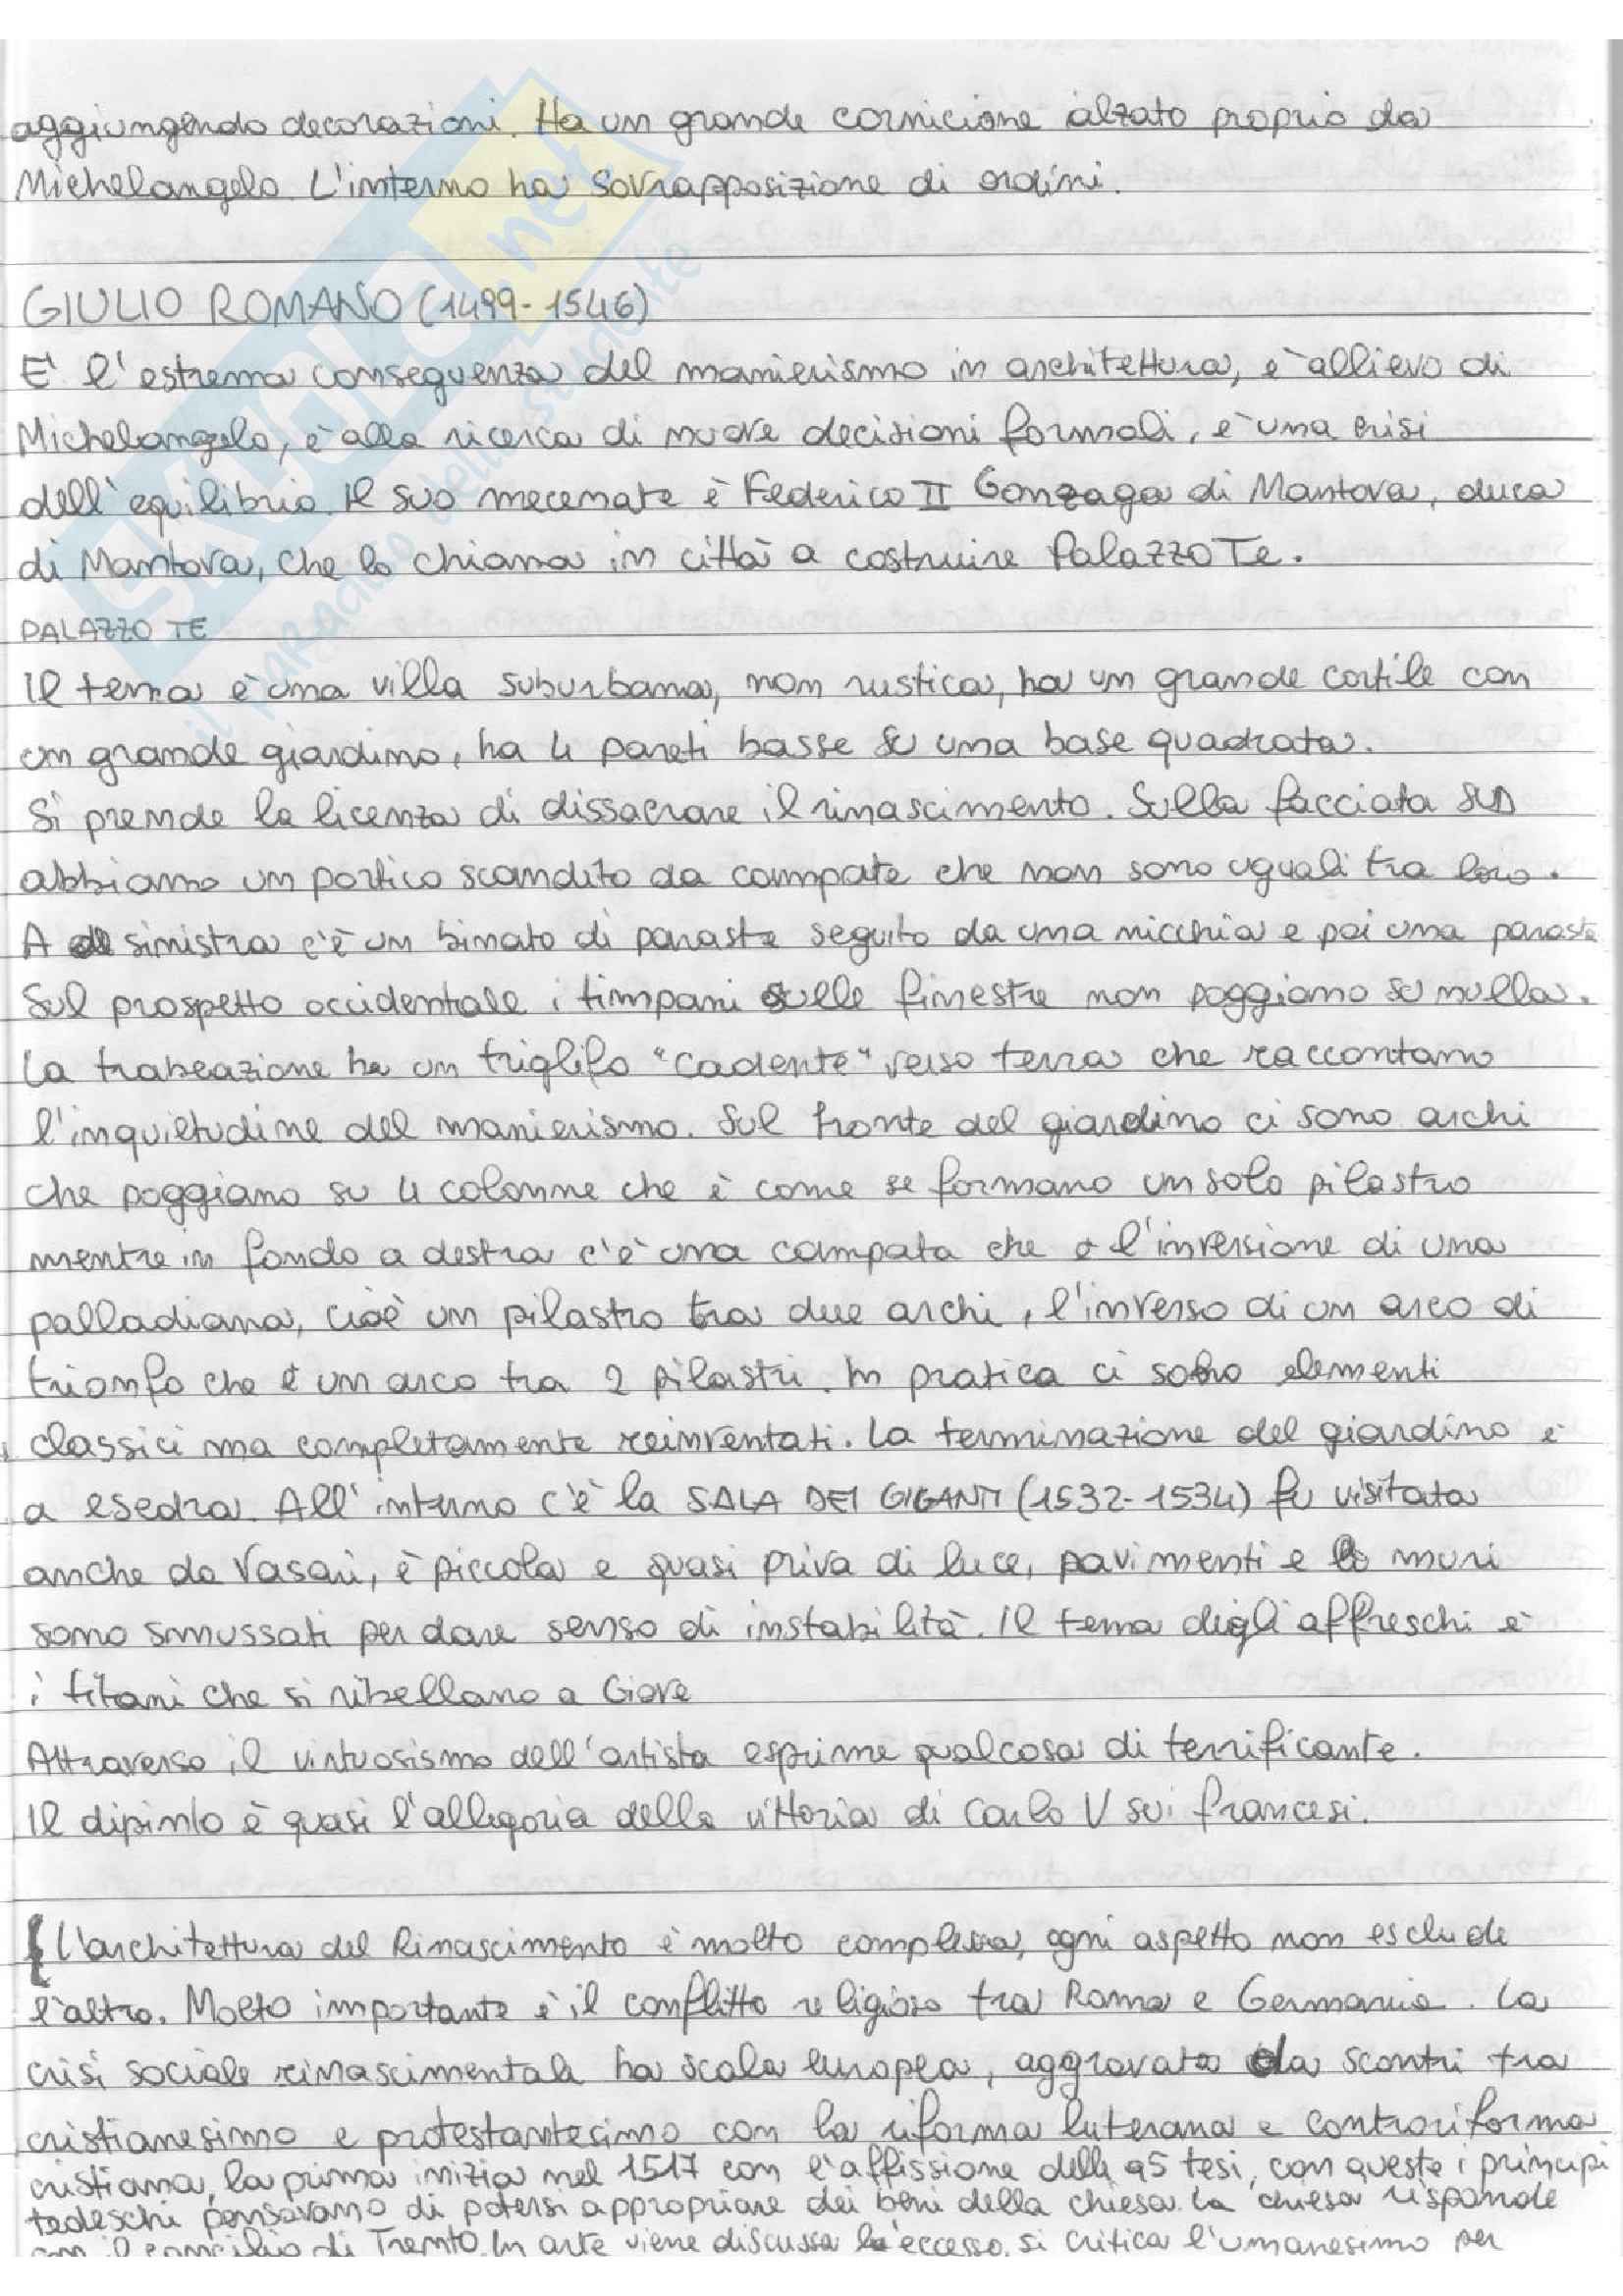 aggiungendo decorazioni. Ha un grande cornicione alzato proprio da
Michelangelo. L'interno ha sovrapposizione di ordini.
GIULIO ROMANO (1499-1546)
E' l'estrema conseguenza del manierismo in architettura, è allievo di
Michelangelo, è alla ricerca di nuove decisioni formali, è una crisi
dell'equilibrio. Il suo mecenate è Federico II Gonzaga di Mantova, duca
di Mantova, che lo chiama in città a costruire Palazzo Te.
PALAZZO TE
Il tema è una villa suburbana, non rustica, ha un grande cortile con
un grande giardino, ha 4 pareti basse su una base quadrata.
Si prende la licenza di dissacrare il rinascimento. Sulla facciata SUD
abbiamo un portico scandito da campate che non sono uguali tra loro.
A sinistra c'è un binato di paraste seguito da una nicchia e poi una parasta
Sul prospetto occidentale i timpani sulle finestre non poggiano su nulla.
La trabeazione ha un triglifo "cadente" verso terra che raccontano
l'inquietudine del manierismo. Sul fronte del giardino ci sono archi
che poggiano su 4 colonne che è come se formano un solo pilastro
mentre in fondo a destra c'è una campata che è l'inversione di una
palladiana, cioè un pilastro tra due archi, l'inverso di un arco di
trionfo che è un arco tra 2 pilastri. In pratica ci sono elementi
classici ma completamente reinventati. La terminazione del giardino è
a esedra. All'interno c'è la SALA DEI GIGANTI (1532-1534) fu visitata
anche da Vasari, è piccola e quasi priva di luce, pavimenti e muri
sono smussati per dare senso di instabilità. Il tema degli affreschi è
i titani che si ribellano a Giove
Attraverso il virtuosismo dell'artista esprime qualcosa di terrificante.
Il dipinto è quasi l'allegoria della vittoria di Carlo V sui francesi.
L'architettura del Rinascimento è molto complessa, ogni aspetto non esclude
l'altro. Molto importante è il conflitto religioso tra Roma e Germania. La
crisi sociale rinascimentale ha scala europea, aggravata da scontri tra
cristianesimo e protestantesimo con la riforma luterana e controriforma
cristiana, la prima inizia nel 1517 con l'affissione delle 95 tesi, con queste i principi
tedeschi pensavano di potersi appropriare dei beni della chiesa. La chiesa risponde
con il concilio di Trento. In arte viene discussa l'eccesso, si critica l'umanesimo per
SKUOLA.net
il paradiso dello studente